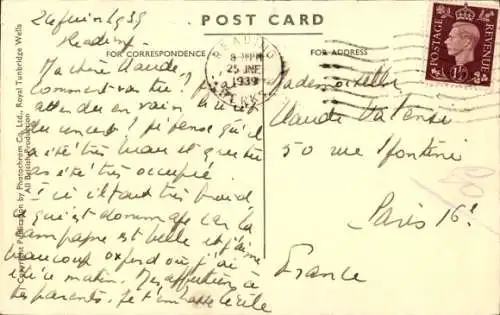 POST CARD
FOR CORRESPONDENCE
FOR ADDRESS
Copyright Publication by Photochrom Co., Ltd., Royal Tunbridge Wells
All British Production
READING
25 JNE
1939
BERKS
POSTAGE
REVENUE
1½D
24 juin 1939
Reading.
Ma chère Claude!
Comment vas-tu? j'ai
attendu en vain
du concert! je pense qu'il
a été très beau et que tu
as été très occupée.
Ici il fait très froid
ce qui est dommage car la
campagne est belle et j'aime
beaucoup Oxford où j'ai
été ce matin. Mes affections à
tes parents. Je t'embrasse Cécile
Mademoiselle
Claude
50 rue
Paris 16e
France